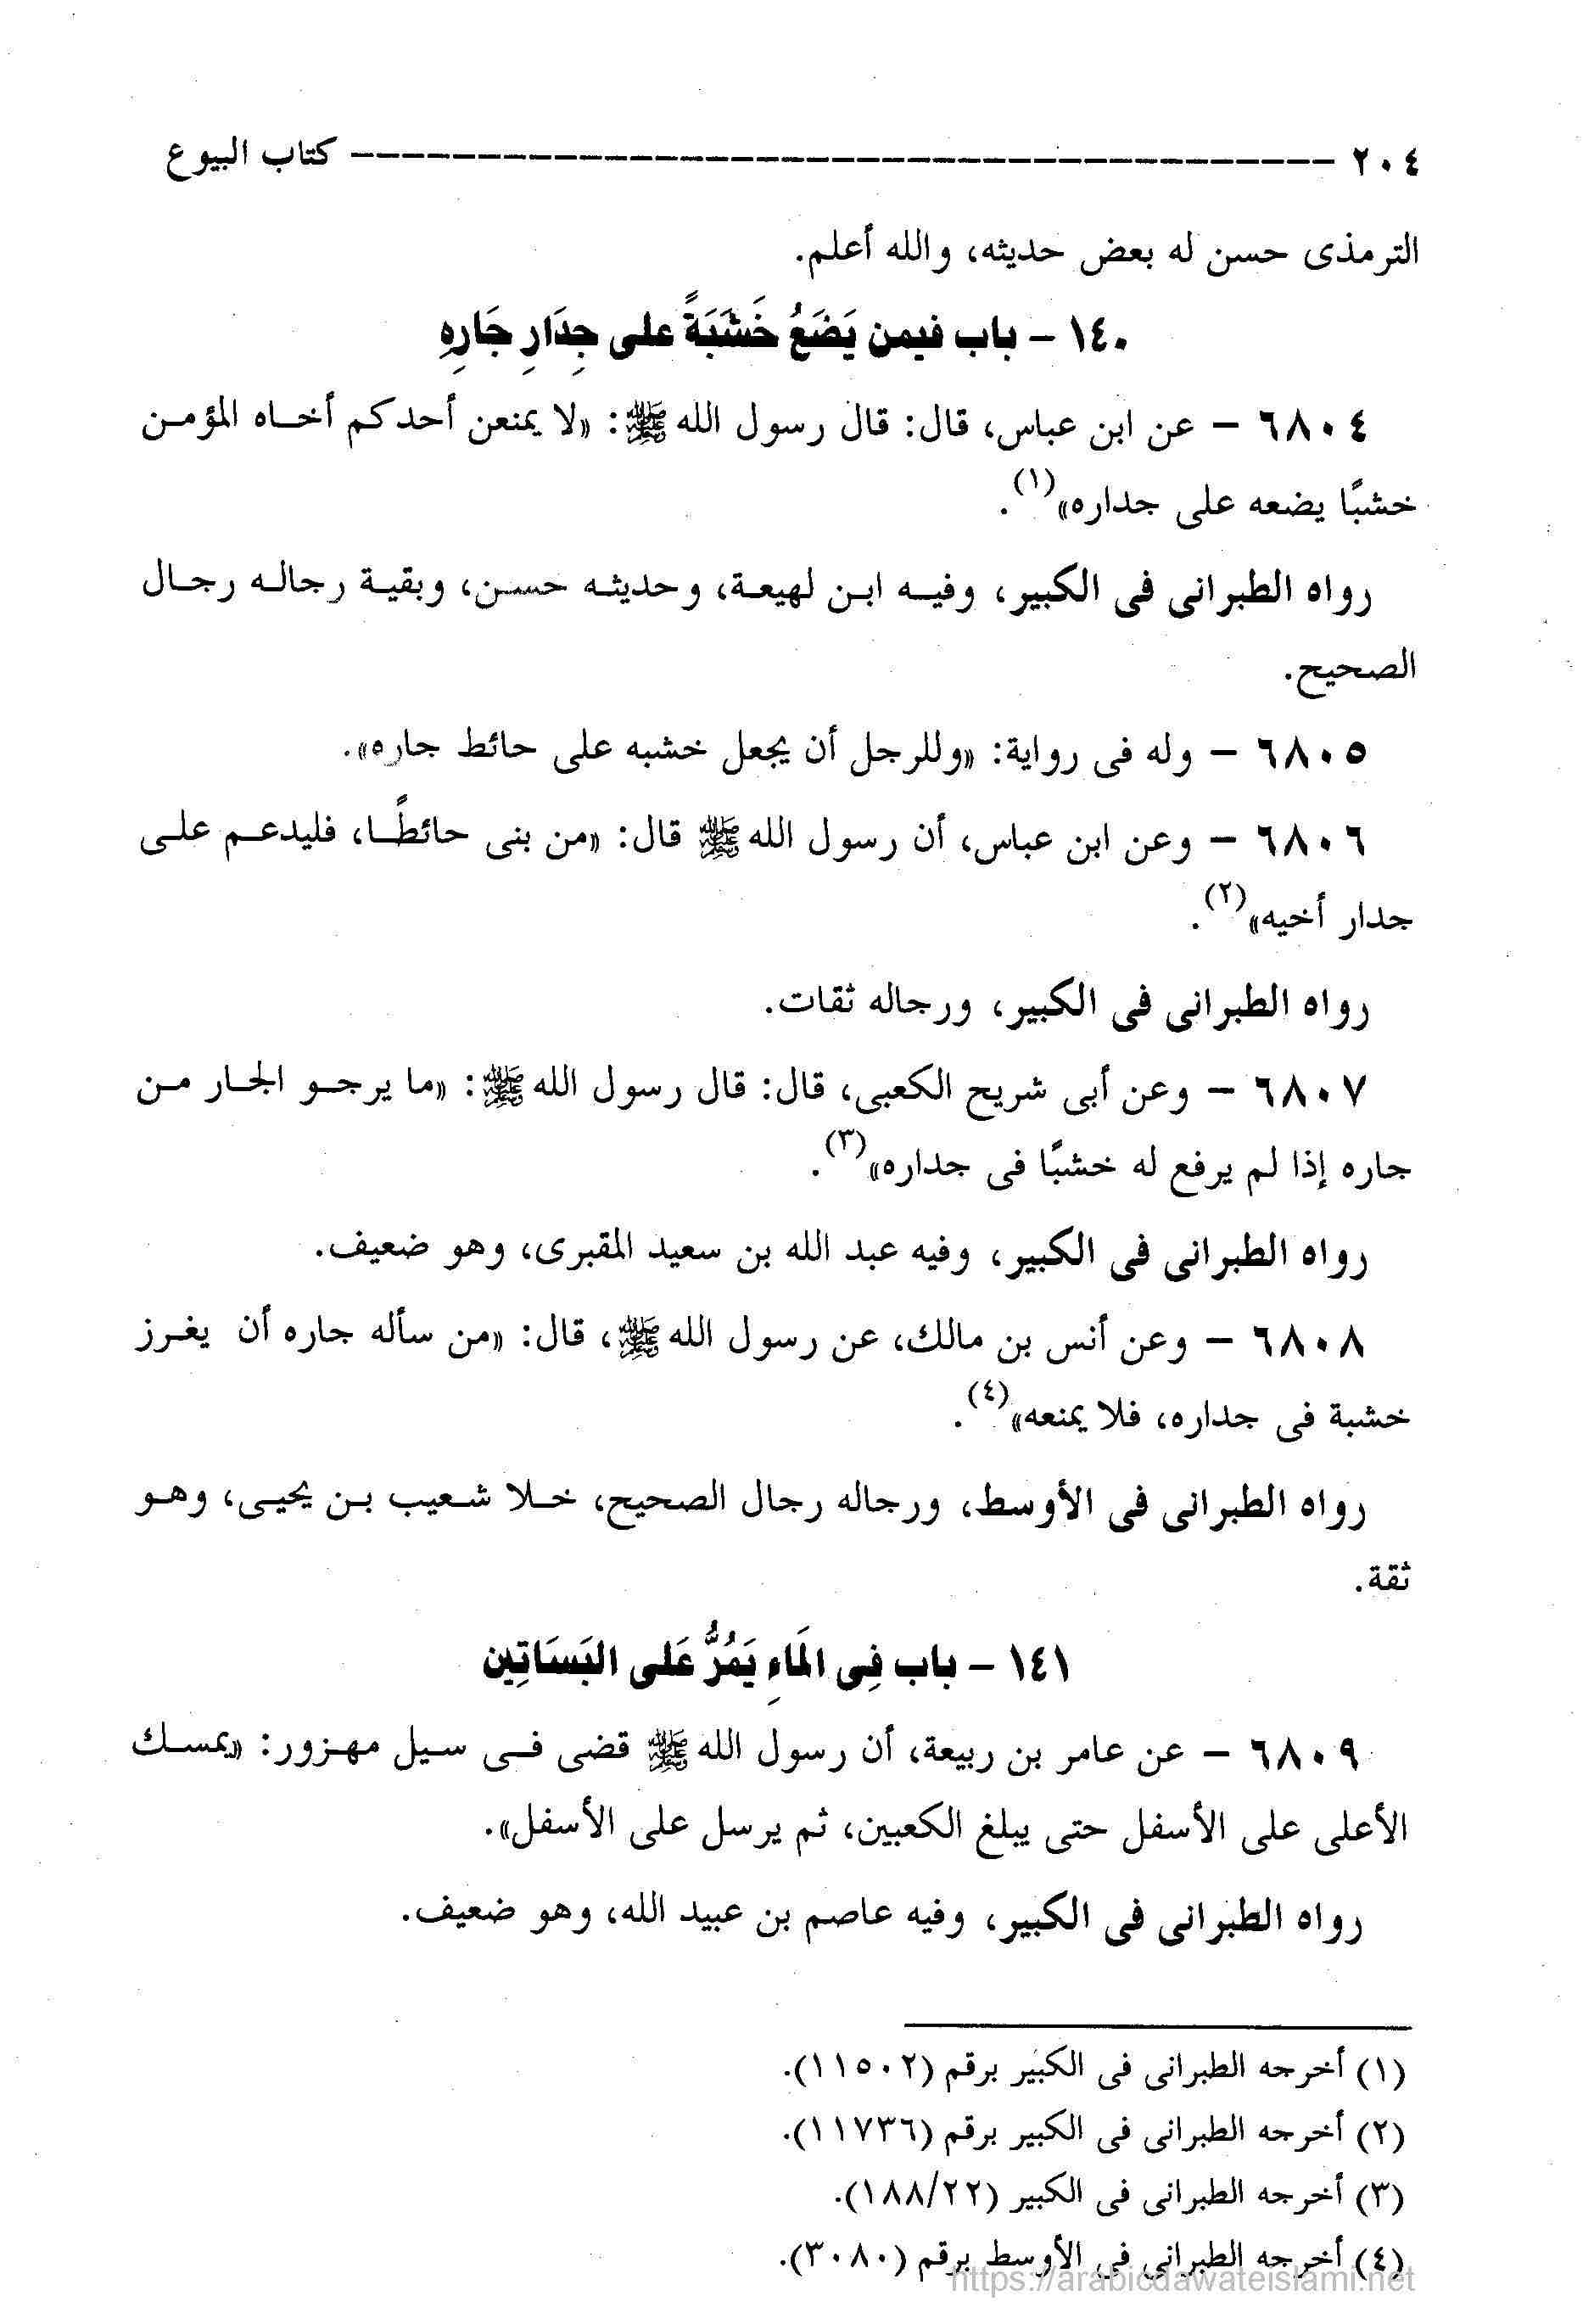 ٢٠٤ ---------------------------------------- كتاب البيوع
الترمذى حسن له بعض حديثه، والله أعلم.
١٤٠ – باب فيمن يَضَعُ خَشَبَةً على جِدَارِ جَارِهِ
٦٨٠٤ – عن ابن عباس، قال: قال رسول الله ﷺ: «لا يمنعن أحدكم أخـاه المؤمـن
خشبًا يضعه على جداره»(١).
رواه الطبرانى فى الكبير، وفيـه ابـن لهيعـة، وحديثـه حسـن، وبقيـة رجالـه رجـال
الصحيح.
٦٨٠٥ – وله فى رواية: «وللرجل أن يجعل خشبه على حائط جاره».
٦٨٠٦ – وعن ابن عباس، أن رسول الله ﷺ قال: «من بنى حائطًـا، فليدعـم علـى
جدار أخيه»(٢).
رواه الطبرانى فى الكبير، ورجاله ثقات.
٦٨٠٧ – وعن أبى شريح الكعبى، قال: قال رسول الله ﷺ: «ما يرجـو الجـار مـن
جاره إذا لم يرفع له خشبًا فى جداره»(٣).
رواه الطبرانى فى الكبير، وفيه عبد الله بن سعيد المقبرى، وهو ضعيف.
٦٨٠٨ – وعن أنس بن مالك، عن رسول الله ﷺ، قال: «من سأله جاره أن يغـرز
خشبة فى جداره، فلا يمنعه»(٤).
رواه الطبرانى فى الأوسط، ورجاله رجال الصحيح، خـلا شـعيب بـن يحيـى، وهـو
ثقة.
١٤١ – باب فِى المَاءِ يَمُرُّ عَلى البَسَاتِين
٦٨٠٩ – عن عامر بن ربيعة، أن رسول الله ﷺ قضى فـى سـيل مهـزور: «يمسـك
الأعلى على الأسفل حتى يبلغ الكعبين، ثم يرسل على الأسفل».
رواه الطبرانى فى الكبير، وفيه عاصم بن عبيد الله، وهو ضعيف.
(١) أخرجه الطبرانى فى الكبير برقم (١١٥٠٢).
(٢) أخرجه الطبرانى فى الكبير برقم (١١٧٣٦).
(٣) أخرجه الطبرانى فى الكبير (١٨٨/٢٢).
(٤) أخرجه الطبرانى فى الأوسط برقم (٣٠٨٠).
https://arabicdawateislami.net